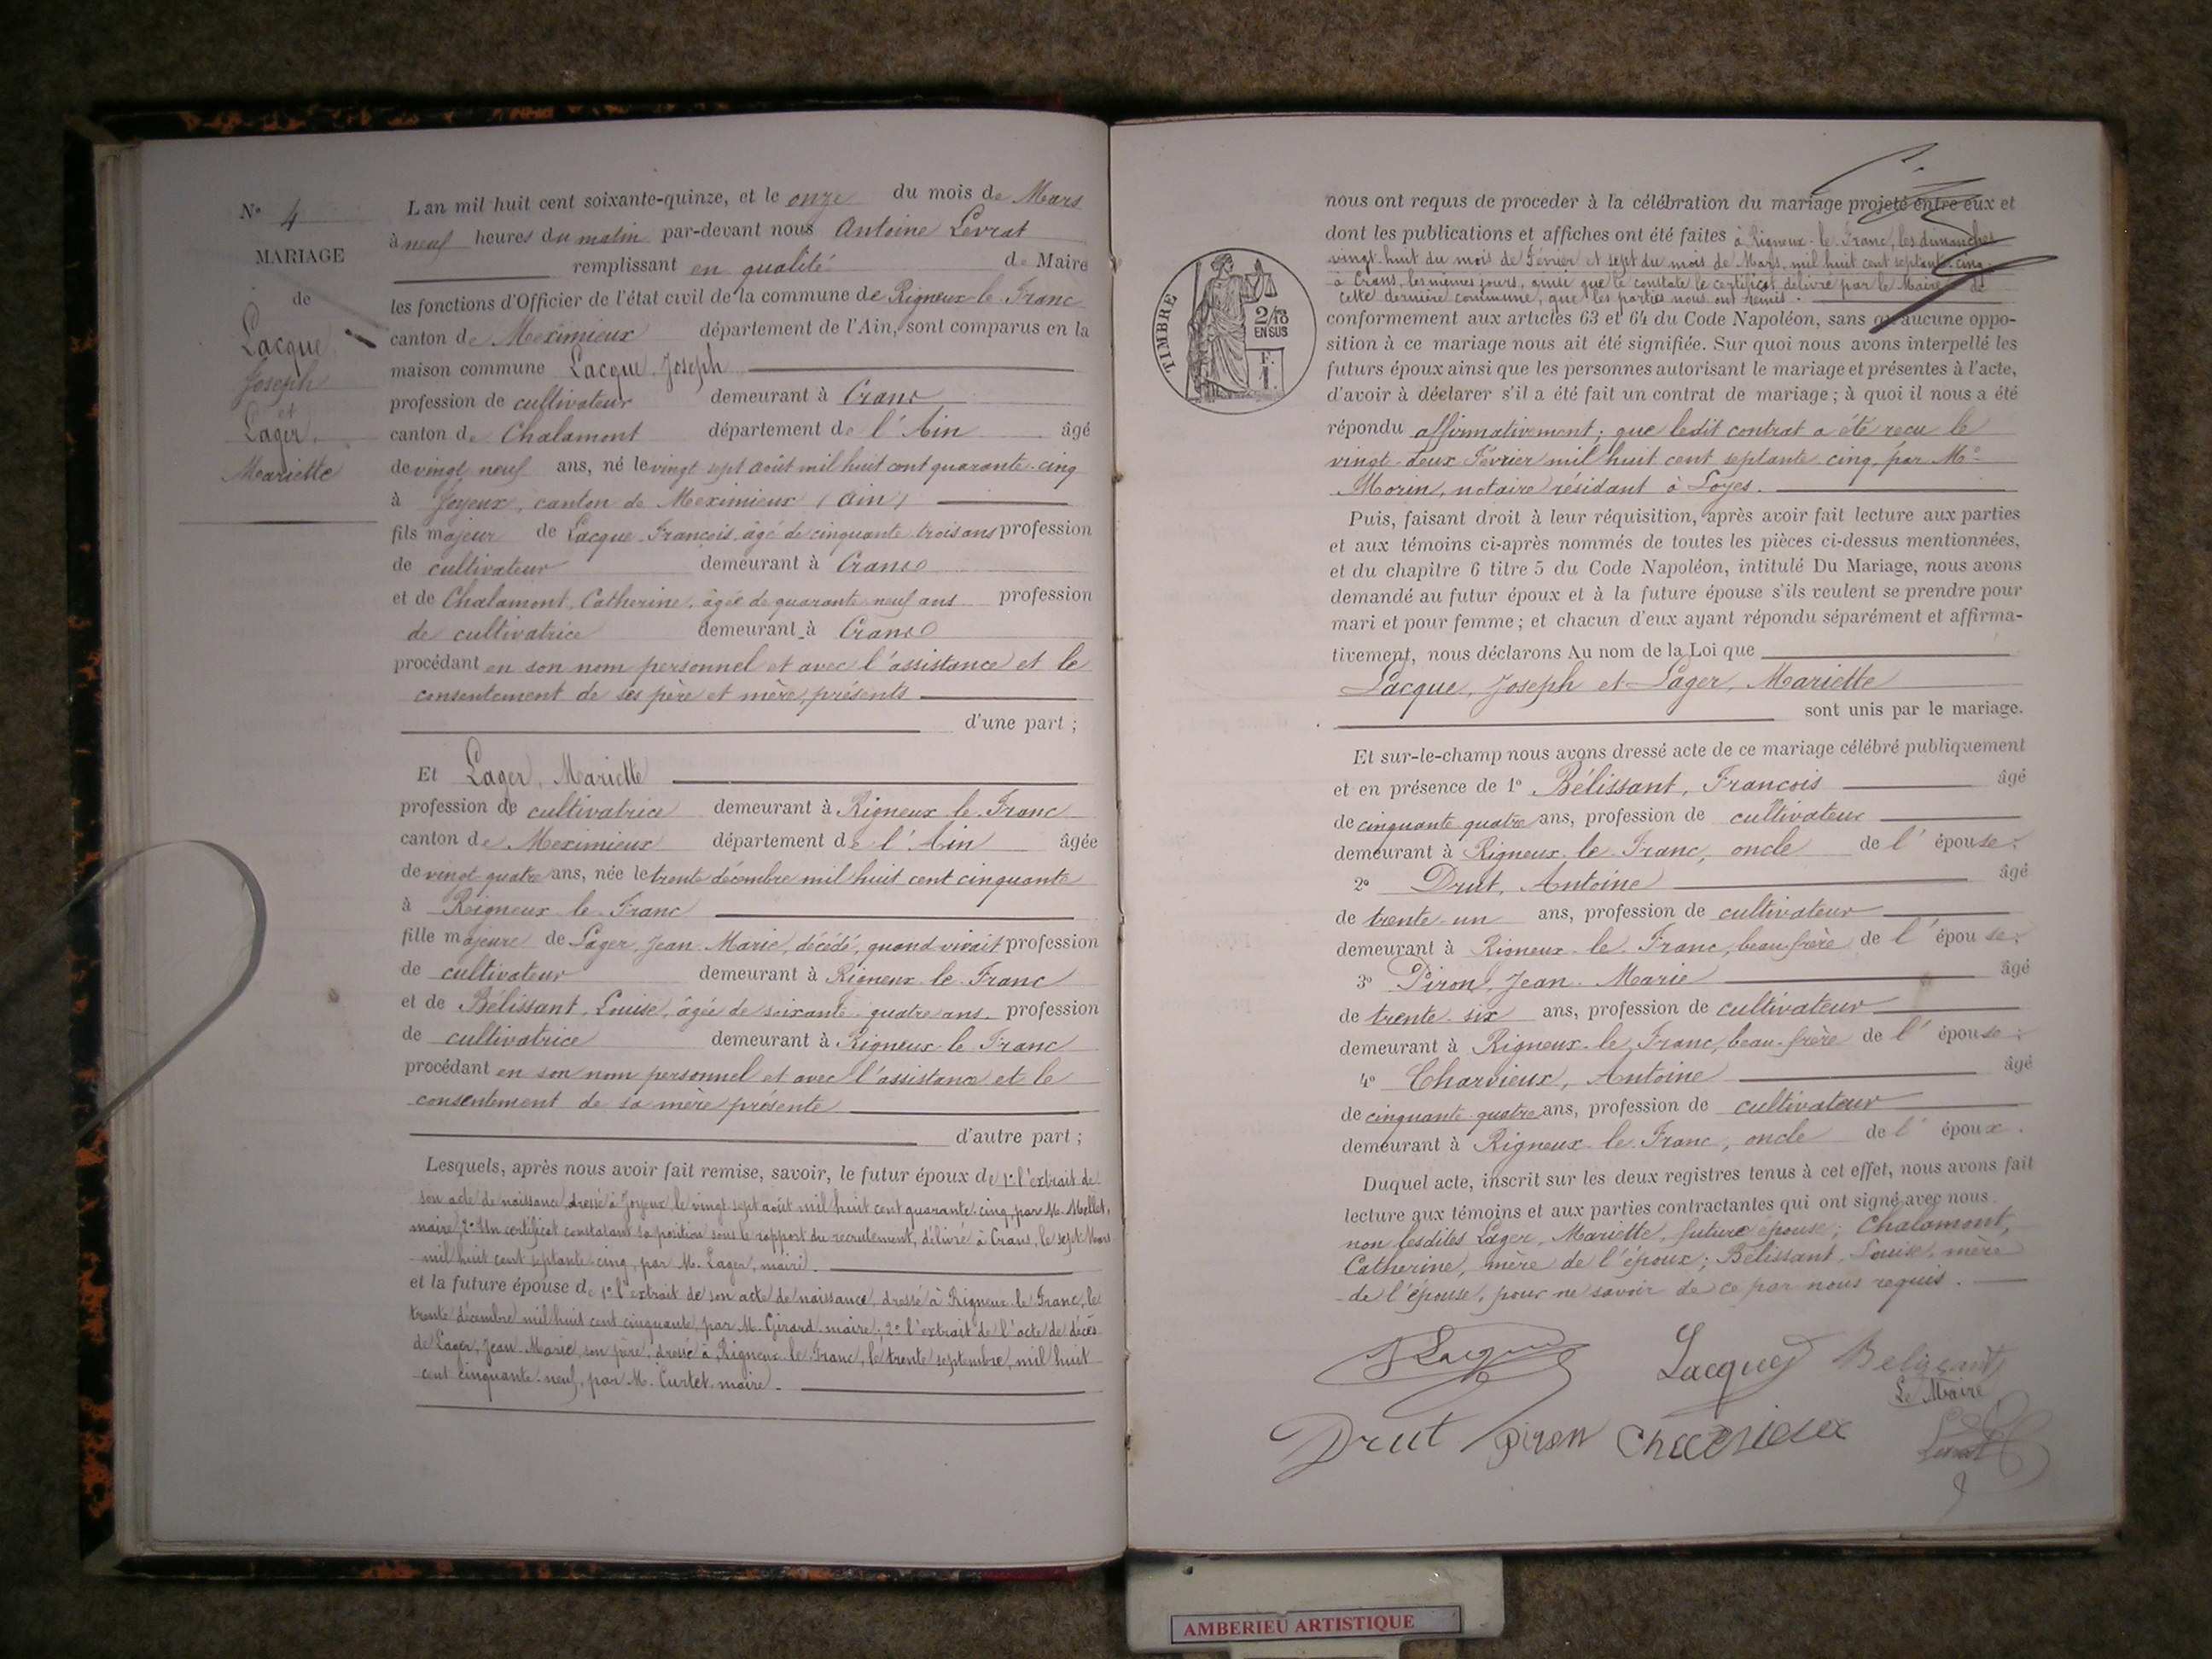 N° 4
MARIAGE
de
Lacque
Joseph
et
Lager
Mariette
L'an mil huit cent soixante-quinze, et le onze du mois de Mars
à neuf heures du matin par-devant nous Antoine Levrat
remplissant en qualité de Maire
les fonctions d'Officier de l'état civil de la commune de Rigneux-le-Franc
canton de Meximieux département de l'Ain, sont comparus en la
maison commune Lacque, Joseph
profession de cultivateur demeurant à Crans
canton de Chalamont département de l'Ain âgé
de vingt neuf ans, né le vingt sept août mil huit cent quarante-cinq
à Joyeux, canton de Meximieux (Ain)
fils majeur de Lacque François, âgé de cinquante trois ans profession
de cultivateur demeurant à Crans
et de Chalamont, Catherine, âgée de quarante neuf ans profession
de cultivatrice demeurant à Crans
procédant en son nom personnel et avec l'assistance et le
consentement de ses père et mère, présents
d'une part ;
Et Lager, Mariette
profession de cultivatrice demeurant à Rigneux-le-Franc
canton de Meximieux département de l'Ain âgée
de vingt quatre ans, née le trente décembre mil huit cent cinquante
à Rigneux-le-Franc
fille majeure de Lager, Jean-Marie, décédé, quand vivait profession
de cultivateur demeurant à Rigneux-le-Franc
et de Bélissant, Louise, âgée de soixante-quatre ans profession
de cultivatrice demeurant à Rigneux-le-Franc
procédant en son nom personnel et avec l'assistance et le
consentement de sa mère présente
d'autre part ;
Lesquels, après nous avoir fait remise, savoir, le futur époux de 1° l'extrait de
son acte de naissance, dressé à Joyeux, le vingt sept août mil huit cent quarante-cinq, par M. Mellet,
maire; 2° Un certificat constatant sa position sous le rapport du recrutement, délivré à Crans, le sept Mars
mil huit cent septante-cinq, par M. Lager, maire.
et la future épouse de 1° l'extrait de son acte de naissance, dressé à Rigneux-le-Franc, le
trente décembre mil huit cent cinquante par M. Girard maire; 2° l'extrait de l'acte de décès
de Lager, Jean-Marie, son père, dressé à Rigneux-le-Franc, le trente septembre, mil huit
cent cinquante-neuf, par M. Curtet maire.
TIMBRE
2/10
EN SUS
F.
1.
nous ont requis de proceder à la célébration du mariage projeté entre eux et
dont les publications et affiches ont été faites à Rigneux-le-Franc, les dimanches
vingt-huit du mois de Février et sept du mois de Mars, mil huit cent septante-cinq
à Crans, les mêmes jours, ainsi que le constate le certificat délivré par le Maire de
cette dernière commune, que les parties nous ont remis.
conformement aux articles 63 et 64 du Code Napoléon, sans qu'aucune oppo-
sition à ce mariage nous ait été signifiée. Sur quoi nous avons interpellé les
futurs époux ainsi que les personnes autorisant le mariage et présentes à l'acte,
d'avoir à déclarer s'il a été fait un contrat de mariage ; à quoi il nous a été
répondu affirmativement; que ledit contrat a été reçu le
vingt-deux Février mil huit cent septante-cinq, par Me
Morin, notaire résidant à Loyes.
Puis, faisant droit à leur réquisition, après avoir fait lecture aux parties
et aux témoins ci-après nommés de toutes les pièces ci-dessus mentionnées,
et du chapitre 6 titre 5 du Code Napoléon, intitulé Du Mariage, nous avons
demandé au futur époux et à la future épouse s'ils veulent se prendre pour
mari et pour femme ; et chacun d'eux ayant répondu séparément et affirma-
tivement, nous déclarons Au nom de la Loi que
Lacque, Joseph et Lager, Mariette
sont unis par le mariage.
Et sur-le-champ nous avons dressé acte de ce mariage célébré publiquement
et en présence de 1° Bélissant, François âgé
de cinquante quatre ans, profession de cultivateur
demeurant à Rigneux-le-Franc, oncle de l'épouse;
2° Drut, Antoine âgé
de trente-un ans, profession de cultivateur
demeurant à Rigneux-le-Franc, beau-frère de l'épouse;
3° Piron, Jean-Marie âgé
de trente-six ans, profession de cultivateur
demeurant à Rigneux-le-Franc, beau-frère de l'épouse;
4° Charvieux, Antoine âgé
de cinquante-quatre ans, profession de cultivateur
demeurant à Rigneux-le-Franc, oncle de l'époux.
Duquel acte, inscrit sur les deux registres tenus à cet effet, nous avons fait
lecture aux témoins et aux parties contractantes qui ont signé avec nous
non lesdites Lager, Mariette, future épouse; Chalamont,
Catherine, mère de l'époux; Bélissant, Louise, mère
de l'épouse, pour ne savoir de ce par nous requis.
J Lacque Lacque Belissant
Le Maire
Drut Piron Charvieux Levrat
AMBERIEU ARTISTIQUE